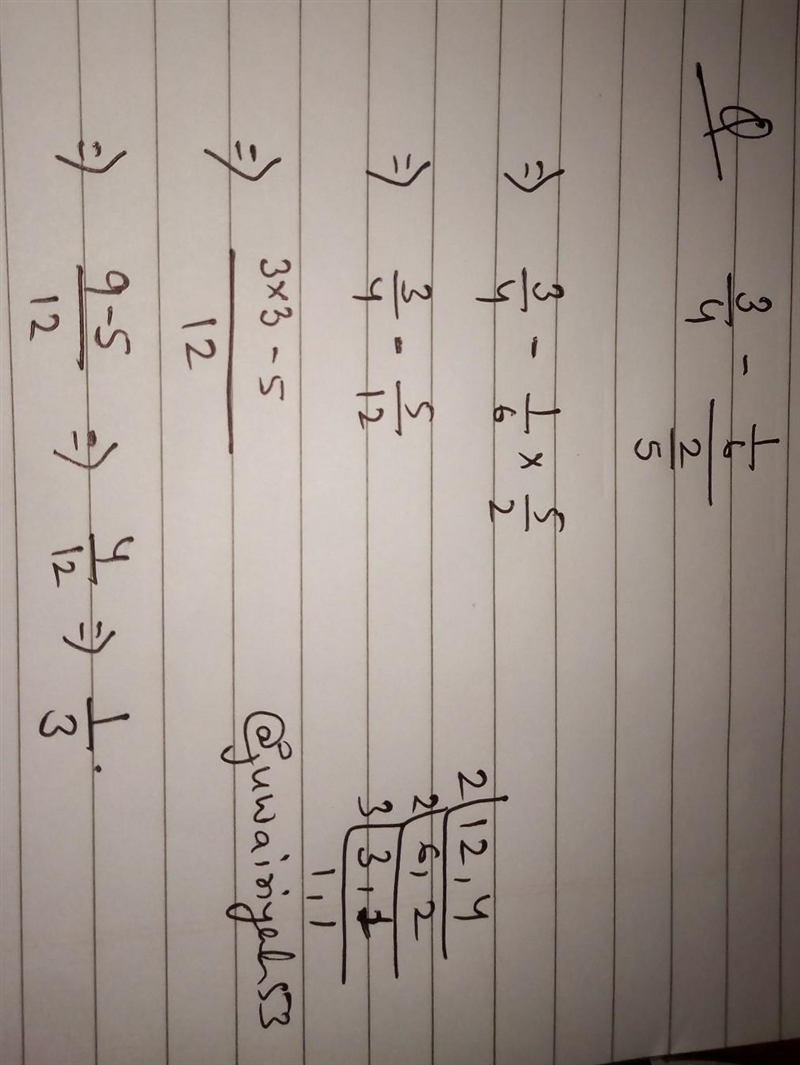 Q 3/4 - 1/6 / 2/5
=) 3/4 - 1/6 × 5/2
=) 3/4 - 5/12
=) 3×3-5 / 12
=) 9-5 / 12 =) 4/12 =) 1/3.
2 12, 4
2 6, 2
3 3, 1
1, 1
@juwairiyah53